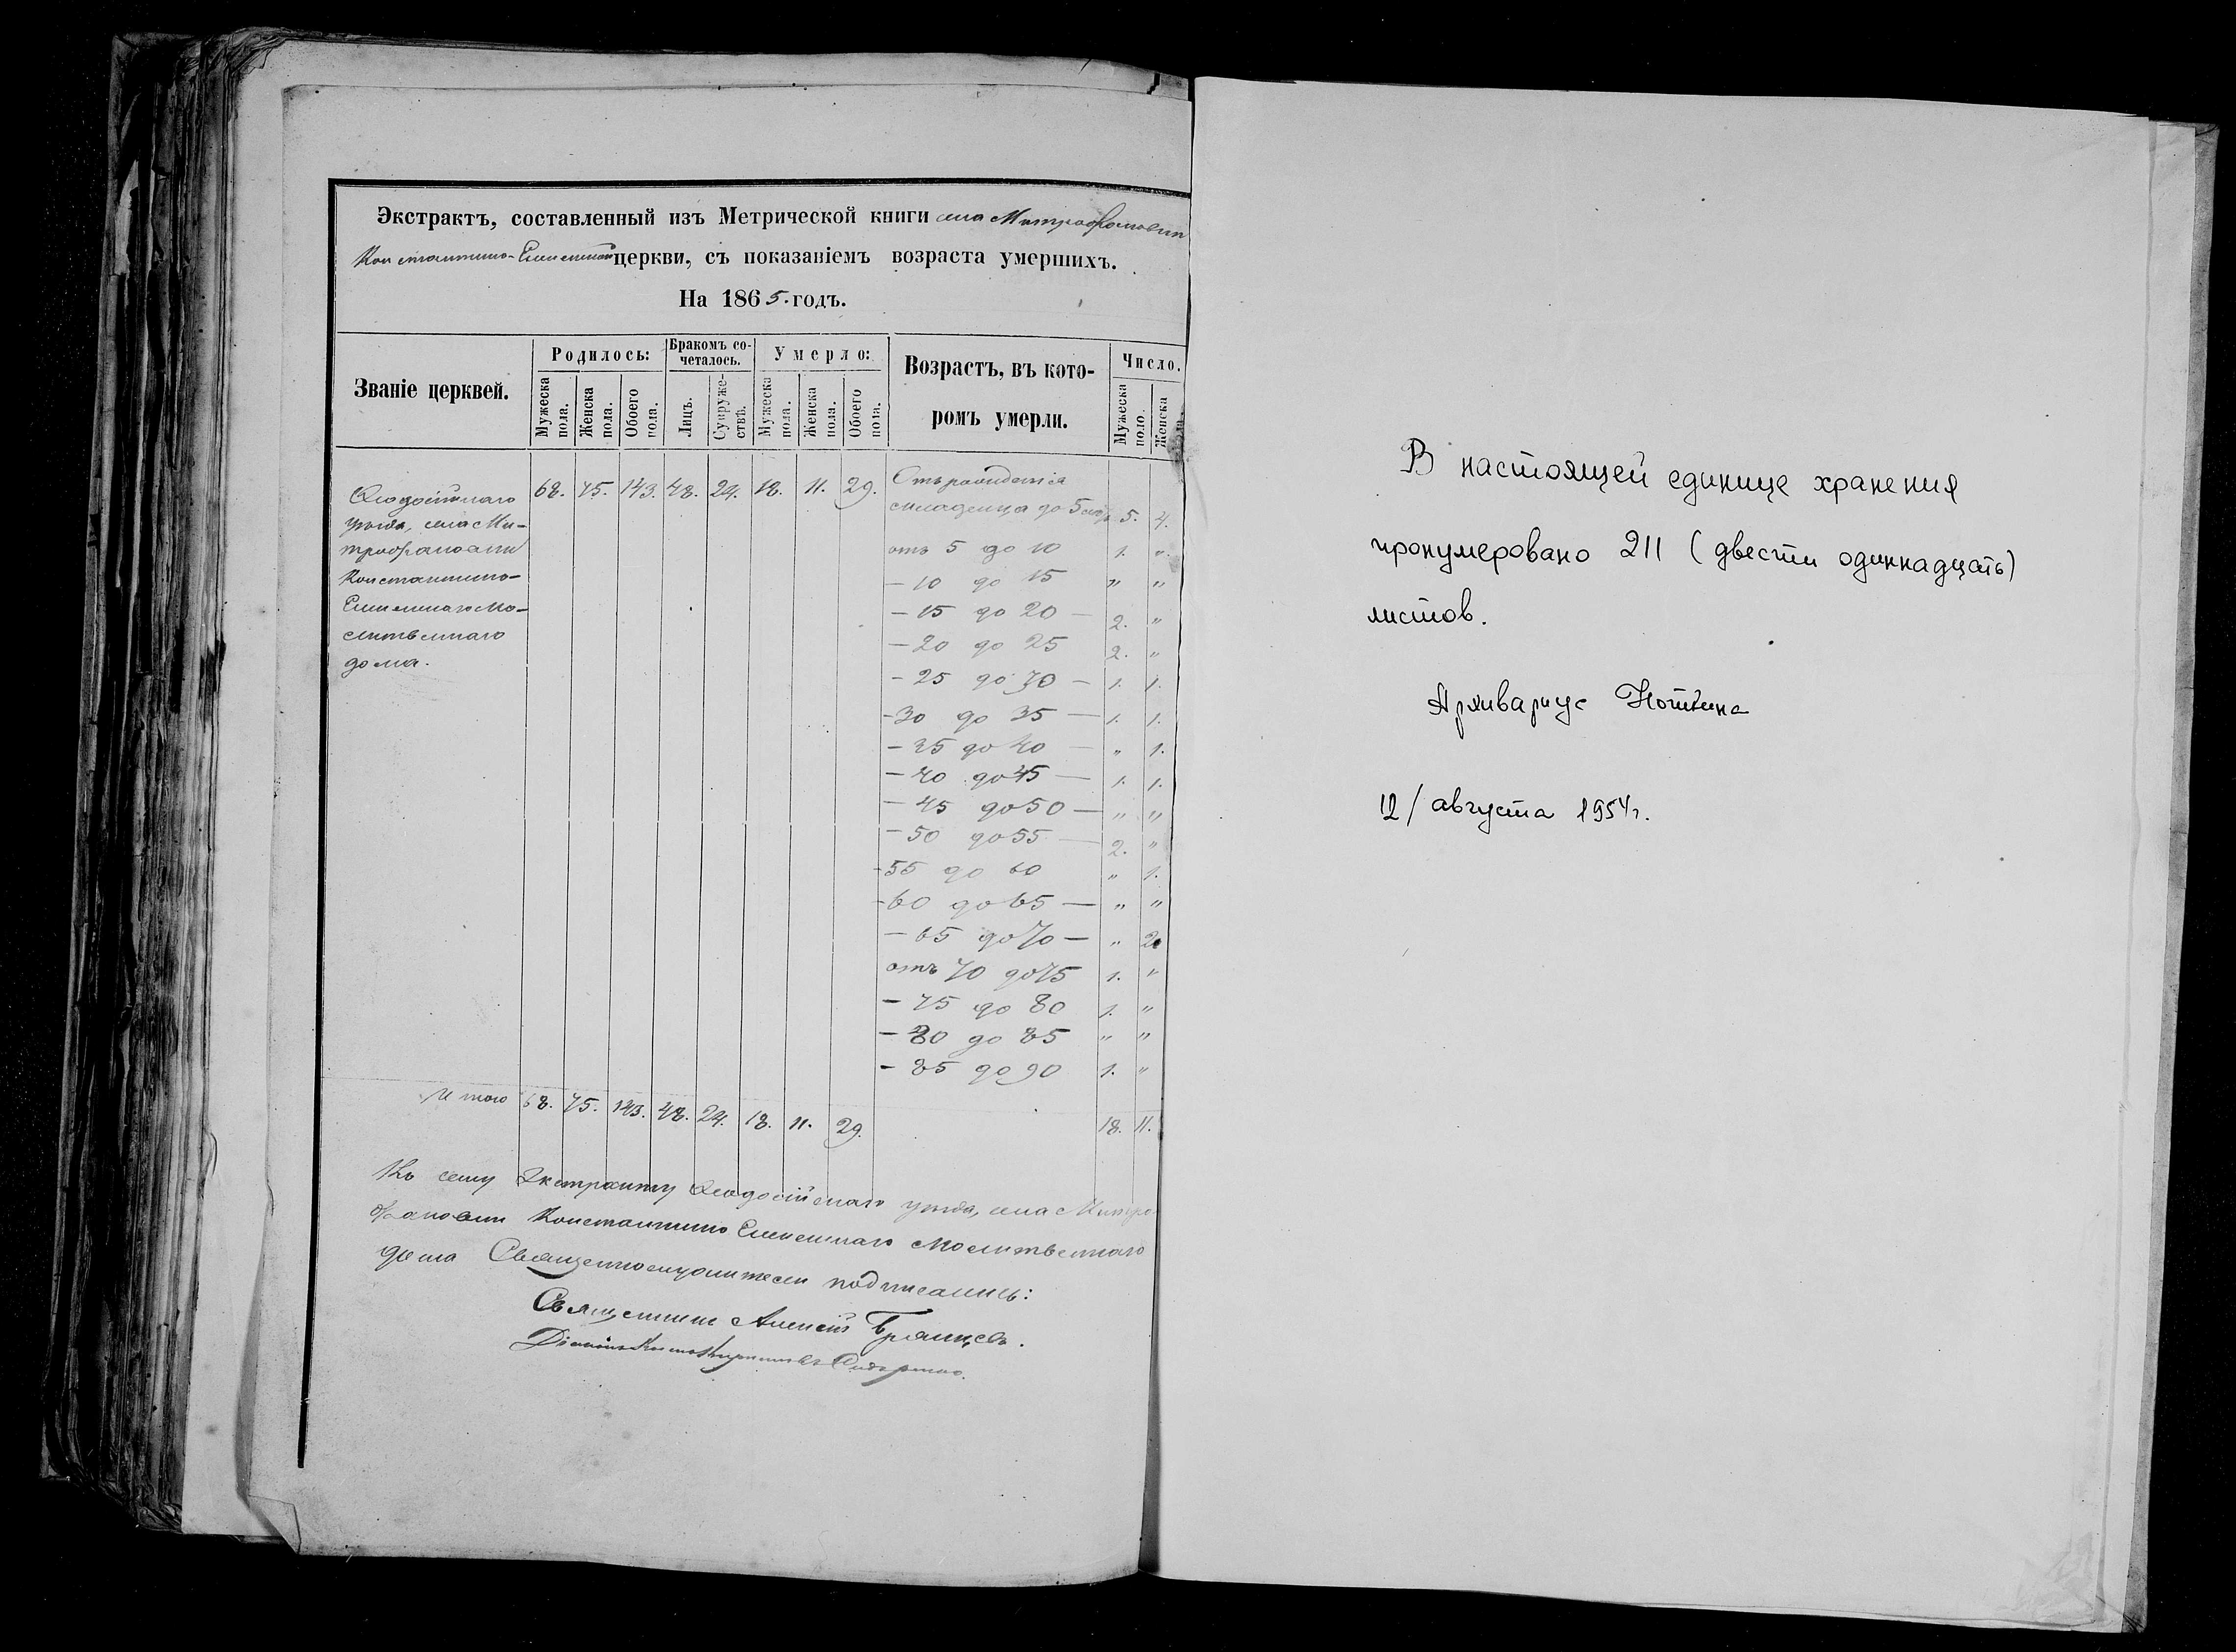 Экстрактъ, составленный изъ Метрической книги села Митрофановки
Константино-Еленинской церкви, съ показаніемъ возраста умершихъ.
На 1865. годъ.
Званіе церквей.
Родилось:
Бракомъ со-
четалось.
Умерло:
Возрастъ, въ кото-
ромъ умерли.
Число.
Мужеска пола.
Женска пола.
Обоего пола.
Лицъ.
Супруже-
ствъ.
Мужеска пола.
Женска пола.
Обоего пола.
Мужеска поло.
Женска
Ѳеодосійскаго 68. 75. 143. 48. 24. 18. 11. 29. Отъ рожденія
уѣзда, села Ми- младенца до 5 5. 4.
трофановки отъ 5 до 10 1. "
Константино- — 10 до 15 " "
Еленинскаго Мо- — 15 до 20 — 2. "
литвеннаго — 20 до 25 2. "
дома. — 25 до 30 — 1. 1.
— 30 до 35 — 1. 1.
— 35 до 40 — " 1.
— 40 до 45 — 1. 1.
— 45 до 50 — " "
— 50 до 55 — 2. "
- 55 до 60 " 1.
- 60 до 65 — " "
— 65 до 70 — " 2.
отъ 70 до 75 1. "
— 75 до 80 1. "
— 80 до 85 " "
— 85 до 90 1. "
Итого 68. 75. 143. 48. 24. 18. 11. 29. 18. 11.
Къ сему Экстракту Ѳеодосійскаго уѣзда, села Митро
фановки Константино Еленинскаго Молитвеннаго
дома Священнослужители подписались:
Священникъ Алексій
Діаконъ
В настоящей единице хранения
пронумеровано 211 (двести одиннадцать)
листов.
Архивариус
12/ августа 1954г.